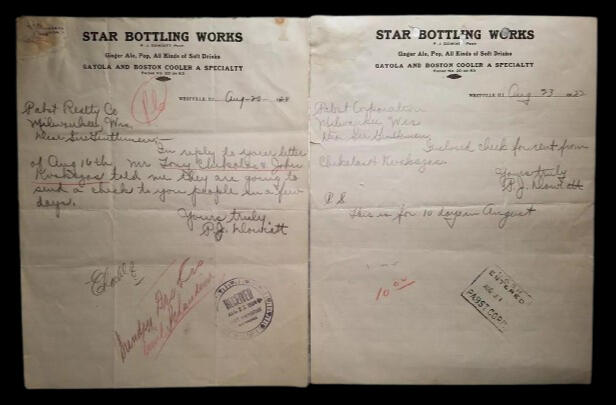 STAR BOTTLING WORKS
P. J. DOWIATT PROP.
Ginger Ale, Pop, All Kinds of Soft Drinks
GAYOLA AND BOSTON COOLER A SPECIALTY
WESTVILLE, ILL.
Pabst Realty Co
Milwaukee, Wis.
Dear Sir Gentlemen:-
In reply to your letter
of Aug 16th Mr Tony Chikolas & John
told me they are going to
send a check to you people in a few
days.
Yours truly,
P.J. Dowiatt
RECEIVED
STAR BOTTLING WORKS
P. J. DOWIATT PROP.
Ginger Ale, Pop, All Kinds of Soft Drinks
GAYOLA AND BOSTON COOLER A SPECIALTY
WESTVILLE, ILL. Aug 23
Pabst Corporation
Milwaukee Wis
Dear Sir Gentlemen,
Inclosed check for rent from
Yours truly
P.J. Dowiatt
P S
This is for 10 days in August
10 00
ENTERED
PABST CORP.